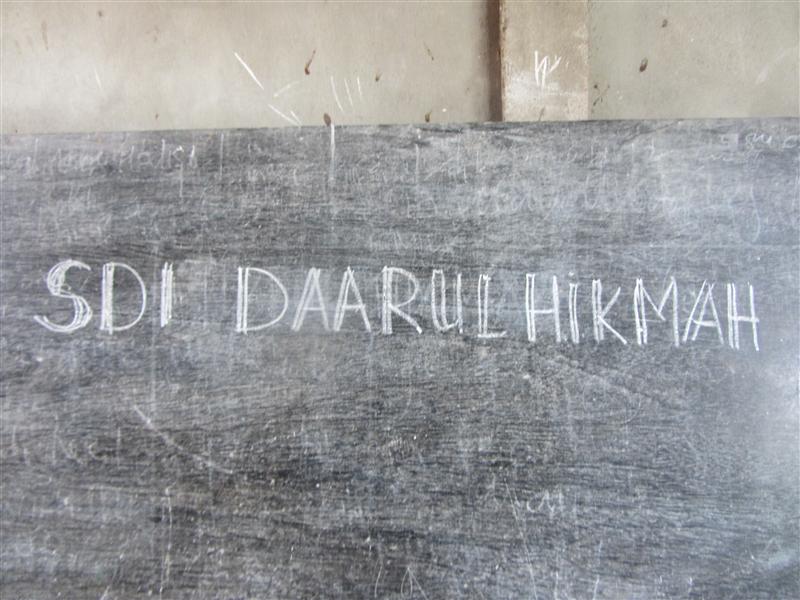 SDI DAARUL HIKMAH